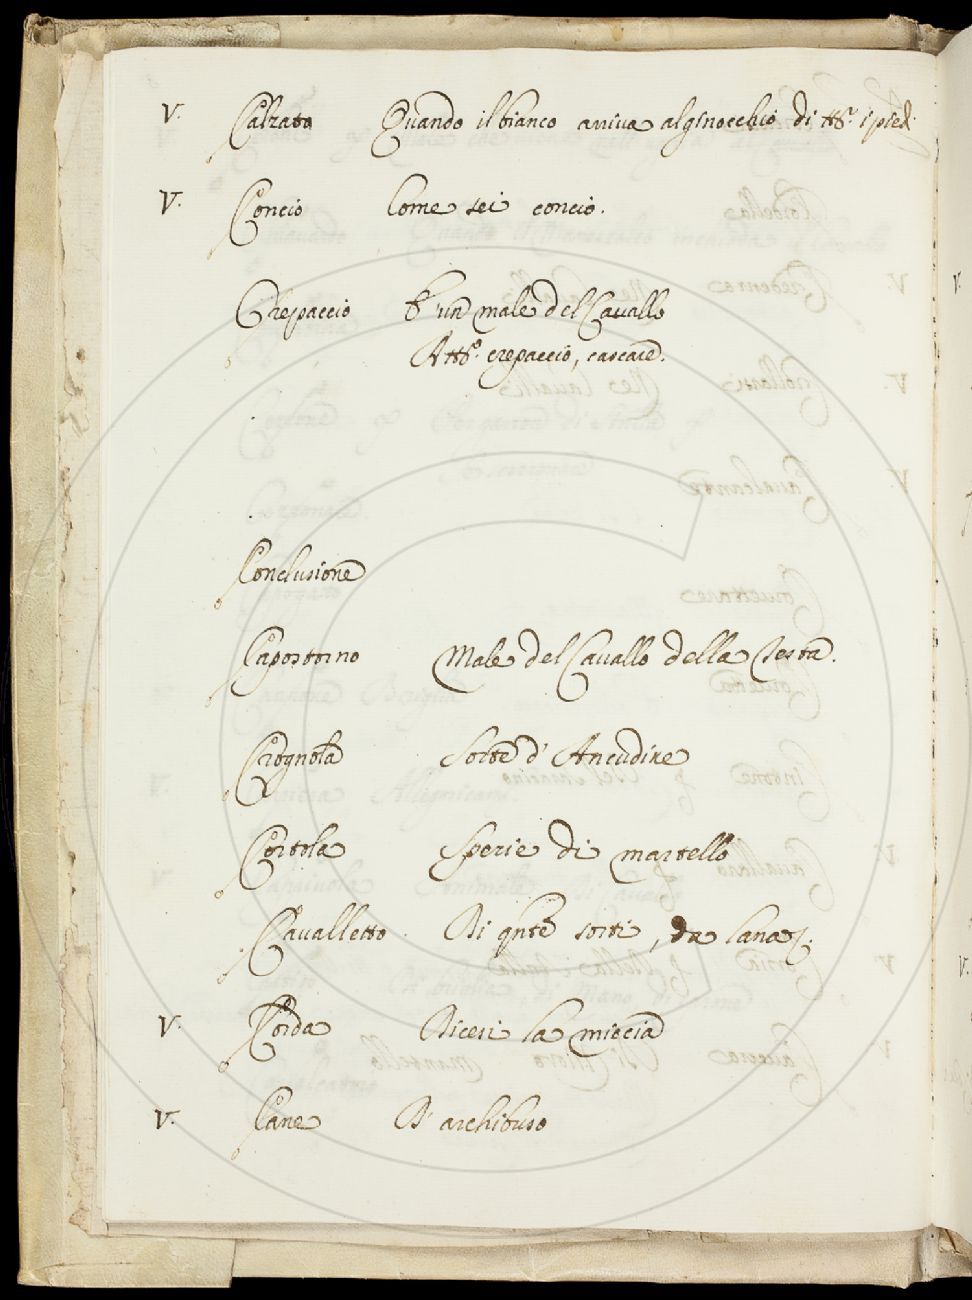 V. Calzato Quando il bianco arriva al ginocchio di tt.ⁱ i pied.
V. Concio Come sei concio.
Crepaccio È un male del Cavallo
Att.º crepaccio, cascare.
Conclusione
Capostorno Male del Cavallo della Testa.
Crognola Sorte d' Ancudine
Cortola Sperie di martello
Cavalletto . Di qnte sorti, da lana
V. Corda Dicesi la miccia
V. Cane D' archibuso